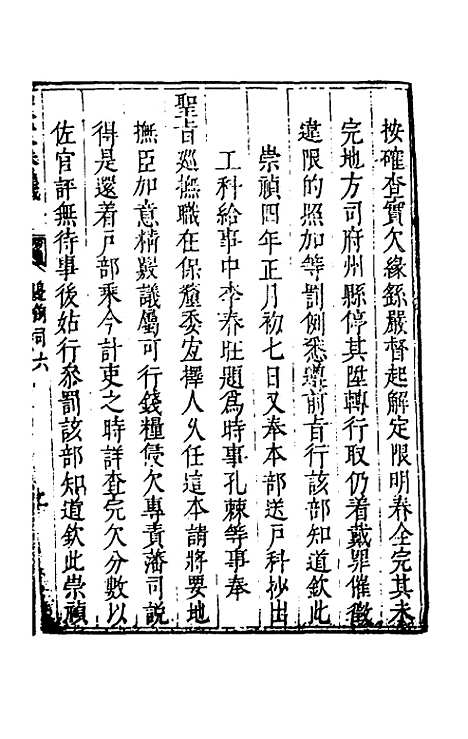 按確查實欠緣繇嚴督起解定限明春全完其未
完地方司府州縣停其陞轉行取仍着戴罪催徵
違限的照加等罰例悉遵前旨行該部知道欽此
崇禎四年正月初七日又奉本部送戶科抄出
工科給事中李春旺題為時事孔棘等事奉
聖旨巡撫職在保釐委宜擇人久任這本請將要地
撫臣加意精覈議屬可行錢糧侵欠專責藩司說
得是還着戶部乘今計吏之時詳查完欠分數以
佐官評無待事後姑行叅罰該部知道欽此崇禎